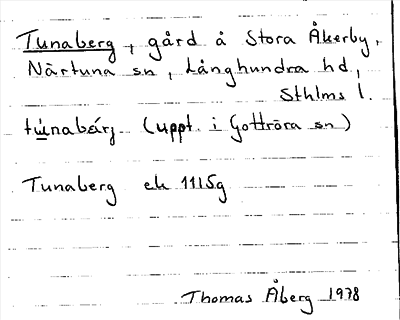 Tunaberg, gård å Stora Åkerby,
Närtuna sn, Långhundra hd,
Sthlms l.
tẁ̱nabèrj (uppt. i Gottröra sn)
Tunaberg ek 11I5g
Thomas Åberg 1978